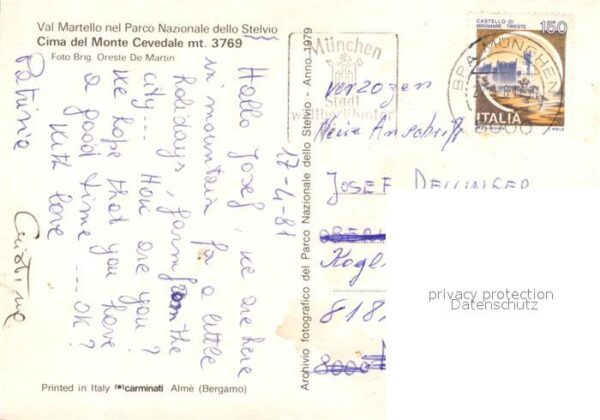 Val Martello nel Parco Nazionale dello Stelvio
Cima del Monte Cevedale mt. 3769
Foto Brig. Oreste De Martin
17-4-81
Hallo Josef, we are here
in mountain for a little
holidays, farm from the
city--- How are you?
We hope that you have
a good time --- OK?
With love
Patrizia
Cristina
Printed in Italy carminati Almè (Bergamo)
Archivio fotografico del Parco Nazionale dello Stelvio - Anno 1979
München
Stadt
weltberühmter
BPA MÜNCHEN
8000
CASTELLO DI
MIRAMARE - TRIESTE
150
ITALIA
verzogen
Neue Anschrift
JOSEF DELLINGER
Kogl
818
8000
privacy protection
Datenschutz